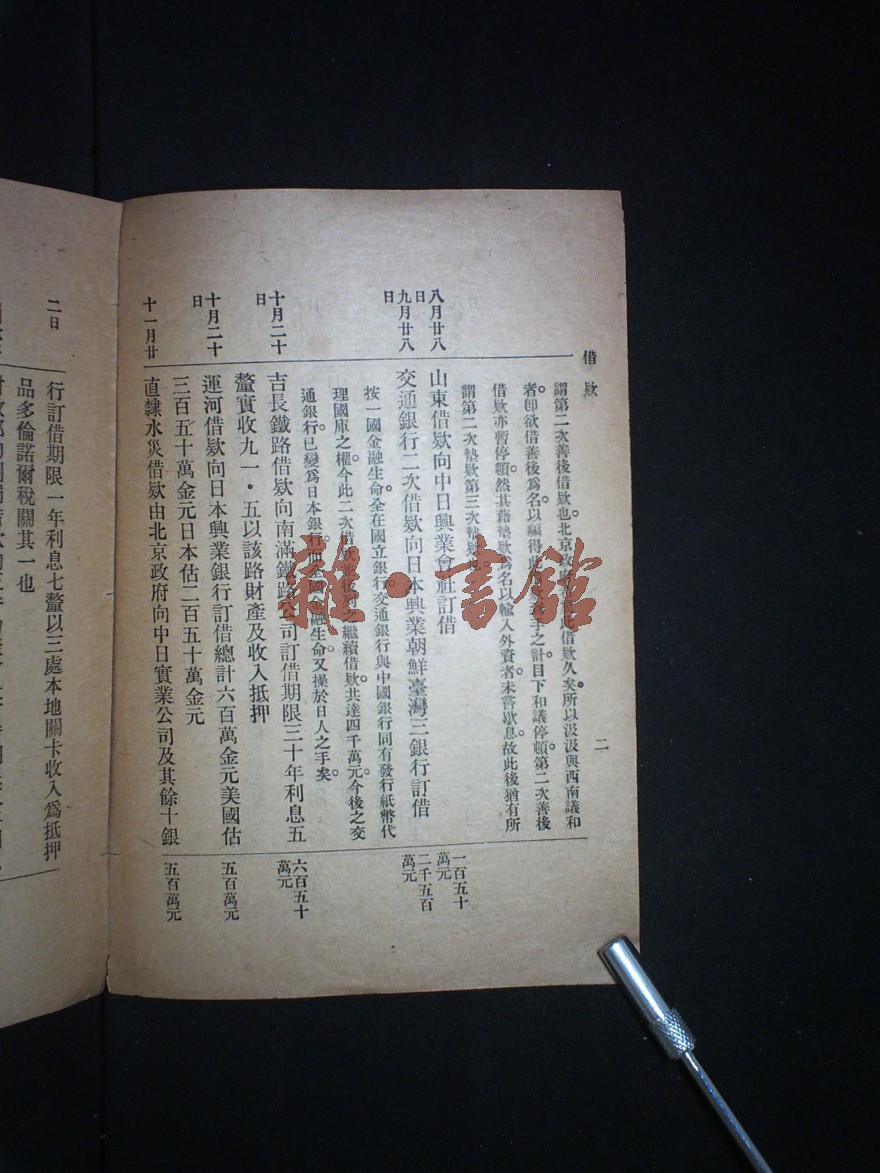 借欵
二
謂第二次善後借欵也。北京政府借欵久矣。所以汲汲與西南議和
者。卽欲借善後爲名。以騙得此之計目下和議停頓。第二次善後
借欵亦暫停頓然其藉墊欵爲名以輸入外資者。未嘗歇息。故此後猶有所
謂第二次墊欵第三次墊欵
八月廿八日
山東借欵向中日興業會社訂借
一百五十萬元
九月廿八日
交通銀行二次借欵向日本興業朝鮮臺灣三銀行訂借
二千五百萬元
按一國金融生命。全在國立銀行。交通銀行與中國銀行同有發行紙幣代
理國庫之權今此二次借欵並後列之繼續借欵。共達四千萬元。今後之交
通銀行。已變爲日本銀行。而全國金融生命。又操於日人之手矣。
十月二十日
吉長鐵路借欵向南滿鐵路公司訂借期限三十年利息五
釐實收九一·五以該路財產及收入抵押
六百五十萬元
十月二十日
運河借欵向日本興業銀行訂借總計六百萬金元美國估
三百五十萬金元日本估二百五十萬金元
五百萬元
十一月廿
直隸水災借欵由北京政府向中日實業公司及其餘十銀
五百萬元
二日
行訂借期限一年利息七釐以三處本地關卡收入爲抵押
品多倫諾爾稅關其一也
雜·書館